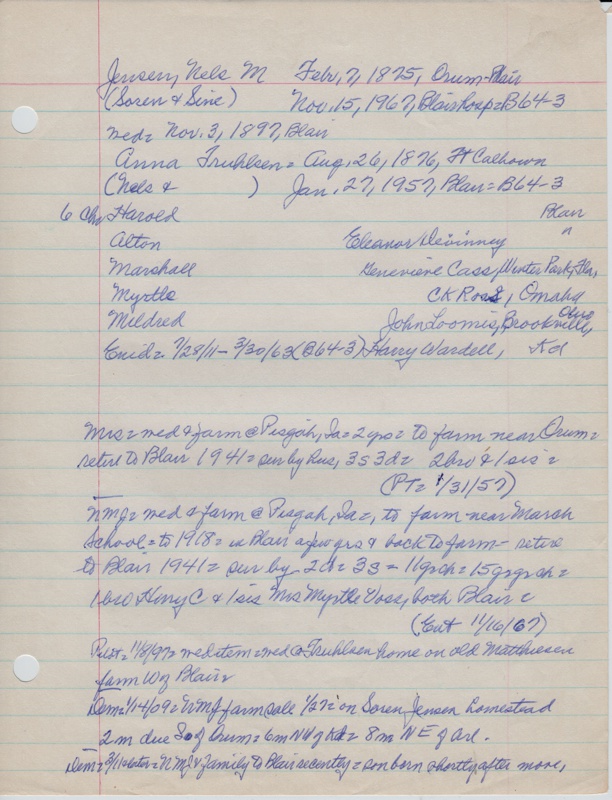 Jensen, Nels M Feb, 7, 1875, Orum-Blair
(Soren & Sine) Nov. 15, 1967, Blair hosp = B64-3
wed = Nov. 3, 1897, Blair
Anna Truhlsen = Aug. 26, 1876, Ft Calhown
(Nels & ) Jan. 27, 1957, Blair = B64-3
6 Ch = Harold Blair
Alton Eleanor Devinney "
Marshall Genevieve Cass, Winter Park, Fla,
Myrtle CK Ross, Omaha
Mildred John Loomis, Brookville, Ohio
Enid = 7/28/11 - 3/30/63 (B64-3) Harry Wardell, Kd
Mrs = wed & farm @ Pisgah, Ia = 2 yrs = to farm near Orum =
retire to Blair 1941 = sur by hus, 3s 3d = 2 bro & 1 sis =
(PT = 1/31/57)
NMJ = wed & farm @ Pisgah, Ia =, to farm near March
School = to 1918 = in Blair a few yrs & back to farm - retire
to Blair 1941 = sur by 2d = 3s = 11 grch = 15 grgrch =
1 bro Henry C & 1 sis Mrs Myrtle Voss, both Blair =
(Ent 11/16/67)
Pilot = 11/8/97 = wed item = wed @ Truhlsen home on old Matthiesen
farm W of Blair =
Dem = 1/14/09 = NMJ farm sale 1/27 = on Soren Jensen homestead
2 m due S of Orum = 6m NW of Kd = 8m NE of Arl.
Dem = 3/11 = NMJ & family to Blair recently = son born shortly after move,